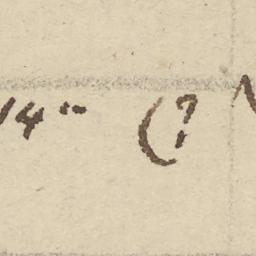 14" (?